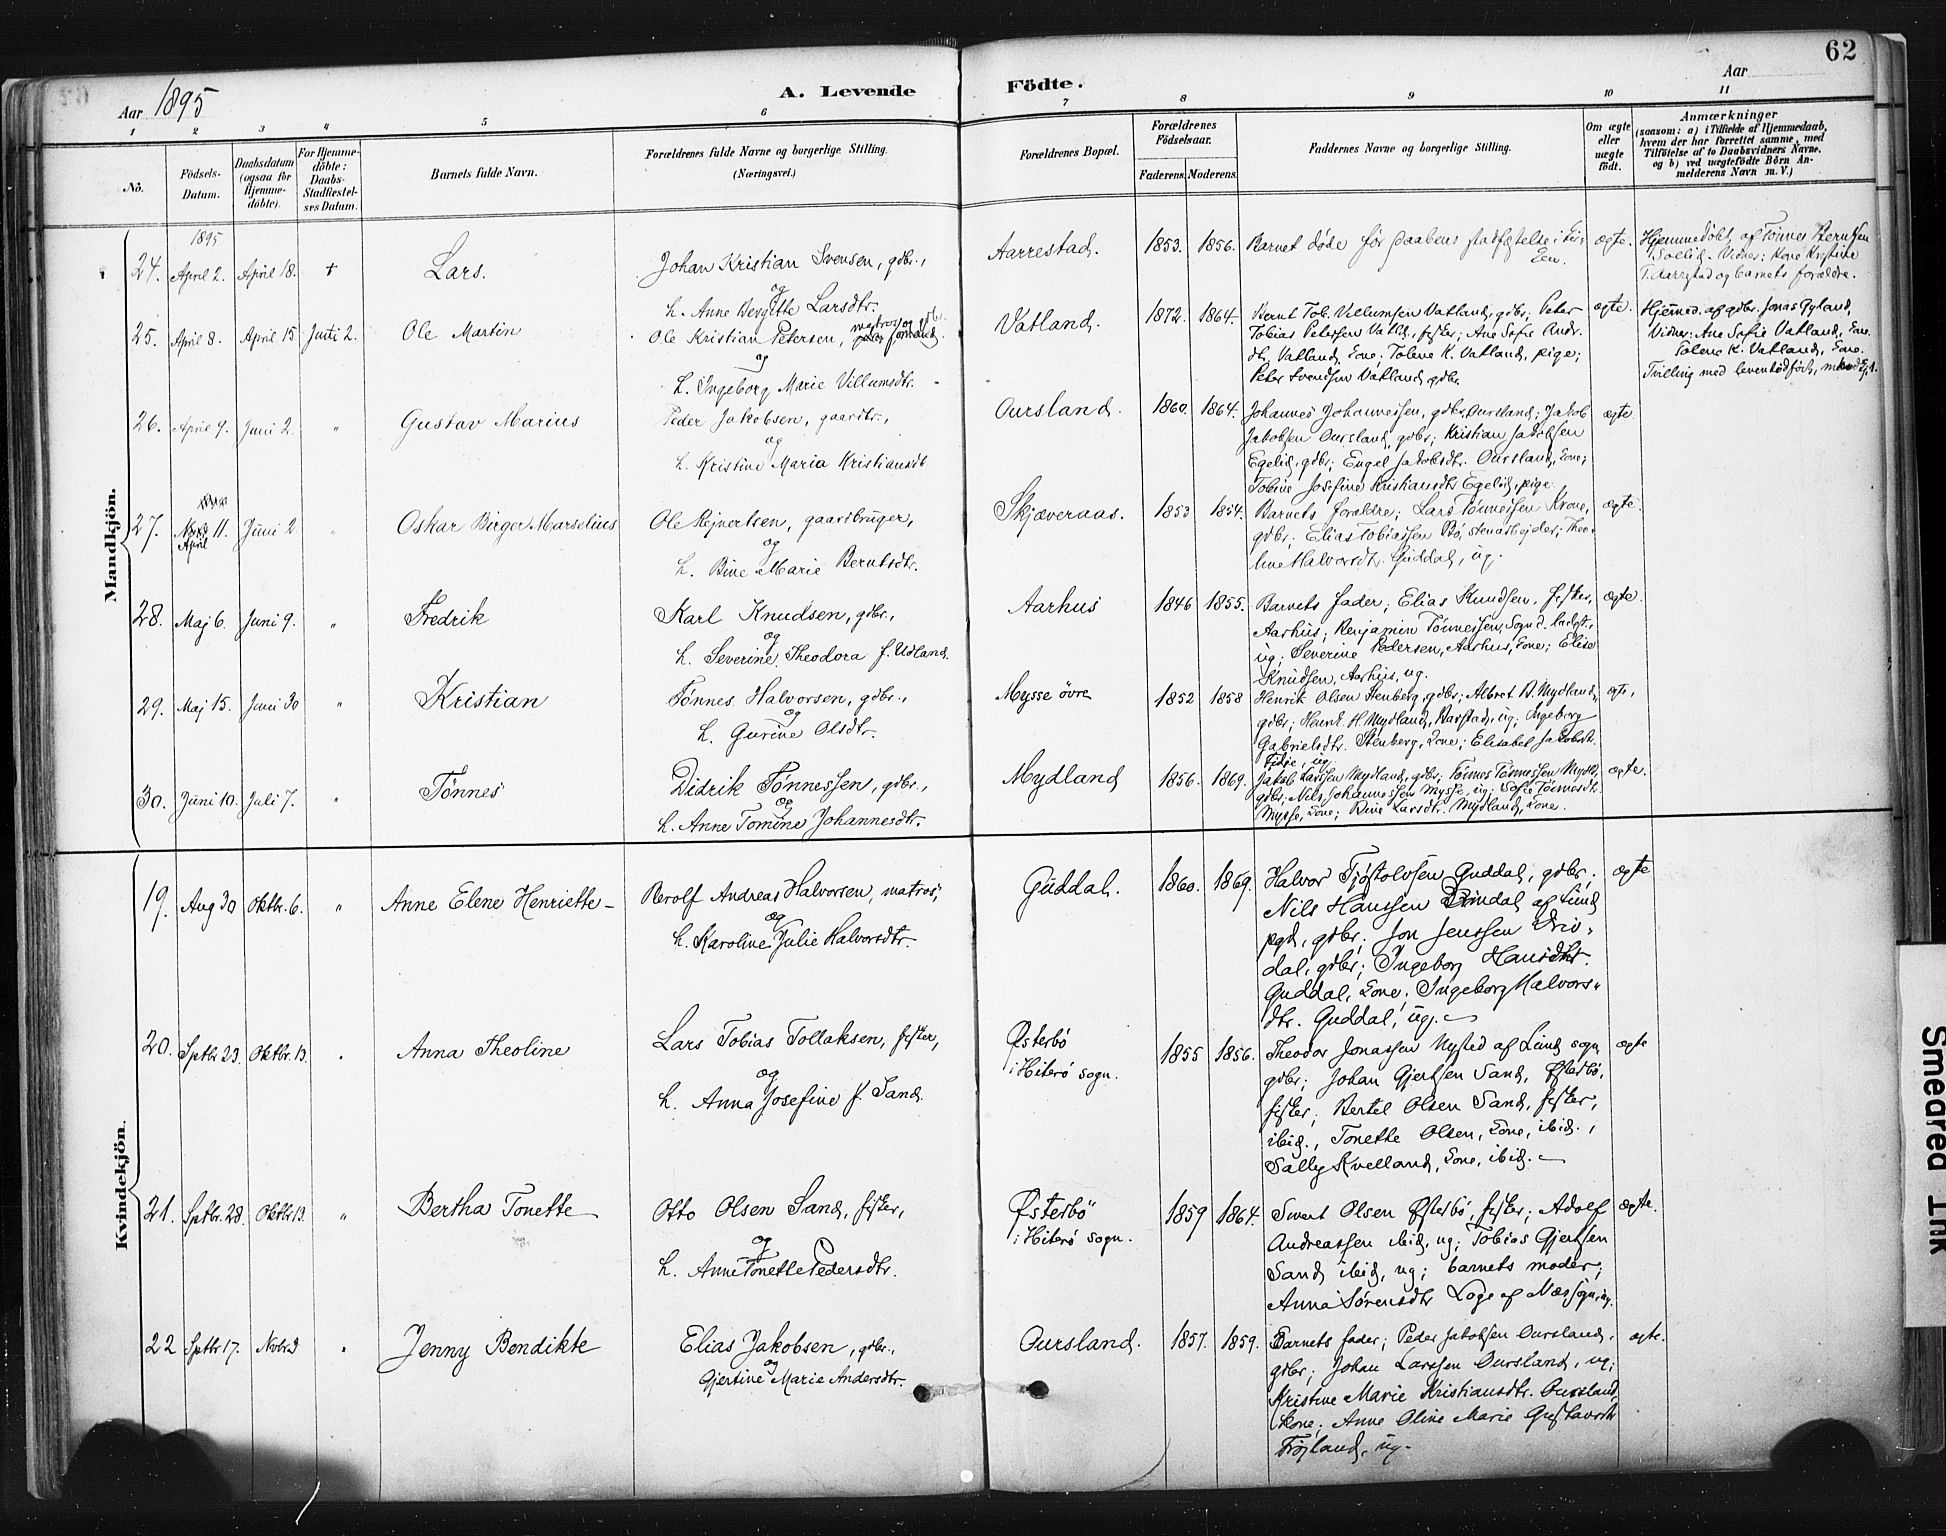 62
Aar 1895
A. Levende
Födte.
Aar
1 2 3 4 5 6 7 8 9 10 11
No.
Födsels-
Datum.
Daabsdatum
(ogsaa for
Hjemme-
döbte).
For Hjemme-
döbte:
Daabs-
Stadfæstel-
ses Datum.
Barnets fulde Navn.
Forældrenes fulde Navne og borgerlige Stilling.
(Næringsvei.)
Forældrenes Bopæl.
Forældrenes
Födselsaar.
Faderens. Moderens.
Faddernes Navne og borgerlige Stilling.
Om ægte
eller
uægte
födt.
Anmærkninger
(saasom: a) i Tilfælde af Hjemmedaab,
hvem der har forrettet samme, med
Tilföielse af to Daabsvidners Navne,
og b) ved uægtefödte Börn An-
melderens Navn m. V.)
Mandkjön.
1895
24. April 2. April 18. + Lars.
Johan Kristian Svensen, gdbr.,
og
h. Anne Bergitte Larsdtr.
Aarrestad. 1853. 1856.
Barnet døde før daabens stadfæstelse i kir-
ken.
ægte.
Hjemmedøbt af Tønnes Berntsen
Soelid. Vidner: kone Kristine
T. Aarrestad og barnets forældre.
25. April 8. April 15 Juni 2. Ole Martin
Ole Kristian Petersen, matros og gdbr.
og
h. Ingeborg Marie Villumsdtr.
Vatland. 1872. 1864.
Bernt Tob. Villumsen Vatland, gdbr; Peter
Tobias Petersen Vatld., fisker; Ane Sofie Andr.
dtr. Vatland, kone; Tolene K. Vatland, pige;
Peter Svendsen Vatland gdbr.
ægte.
Hjemmed. af gdbr. Jonas Gyland,
Vidner: Ane Sofie Vatland, kone.
Tolene K. Vatland, kone.
Tvilling med levendefødt,
26. April 9. Juni 2. " Gustav Marius
Peder Jakobsen, gaardbr.,
og
h. Kristine Maria Kristiansdt
Oursland. 1860. 1864.
Johannes Johannessen, gdbr, Oursland; Jakob
Jakobsen Oursland, gdbr; Kristian Jakobsen
Egelid, gdbr; Engel Jakobsdtr. Oursland, kone;
Tobine Josefine Kristiansdtr Egelid, pige.
ægte.
27. 11. April Juni 2. " Oskar Birger Marselius
Ole Rejnertsen, gaardbruger,
og
h. Bine Marie Berntsdtr.
Skjæveraas. 1853 1854.
Barnets forældre; Lars Tønnessen Krone,
gdbr; Elias Tobiassen Bø, stenarbejder; Theo-
line Halvorsdtr. Guddal, ug.
ægte.
28. Maj 6. Juni 9. " Fredrik
Karl Knudsen, gdbr.,
og
h. Severine Theodora f. Udland.
Aarhus 1846 1855.
Barnets fader; Elias Knudsen, fisker,
Aarhus; Benjamin Tønnessen, Sognd.
ug; Severine Pedersen, Aarhus, kone; Elise
Knudsen, Aarhus, ug.
ægte.
29. Maj 15. Juni 30 " Kristian
Tønnes Halvorsen, gdbr.,
og
h. Gurine Olsdtr.
Mysse øvre 1852 1858
Henrik Olsen Stenberg, gdbr; Albret B. Mydland,
gdbr; Henrik H. Mydland, Barstad, ug; Ingeborg
Gabrielsdtr. Stenberg, kone; Elisabet Jakobsdt.
Eidje, ug.
ægte.
30. Juni 10. Juli 7. " Tønnes
Didrik Tønnessen, gdbr.,
og
h. Anne Tomine Johannesdtr.
Mydland 1856. 1869.
Jakob Larssen Mydland, gdbr; Tønnes Tønnessen Mydld,
gdbr; Nils Johannessen Mysse, ug; Sofie Tønnesdtr.
Mysse, kone; Bine Larsdtr. Mydland, kone.
ægte.
Kvindekjön.
19. Aug 30 Oktbr. 6. " Anne Elene Henriette
Berolf Andreas Halvorsen, matros,
og
h. Karoline Julie Halvorsdtr.
Guddal. 1860. 1869.
Halvor Tjøstolvsen Guddal, gdbr;
Nils Hanssen Drivdal af Lund
pgd, gdbr; Jon Jenssen Driv-
dal, gdbr; Ingeborg Hansdtr.
Guddal, kone; Ingeborg Halvors-
dtr. Guddal, ug.
ægte
20. Septbr 23. Oktbr. 13. " Anna Theoline
Lars Tobias Tollaksen, fisker,
og
h. Anna Josefine f. Sand.
Østerbø
i Hiterø sogn.
1855 1856.
Theodor Jonassen Nysted af Lund sogn
gdbr; Johan Gjertsen Sand, Østerbø,
fisker; Bertel Olsen Sand, fisker,
ibid., Tonette Olsen, kone, ibid.,
Sally Kvelland, kone, ibid.
ægte
21. Septbr. 28. Oktbr 13. " Bertha Tonette
Otto Olsen Sand, fisker,
og
h. Anne Tonette Pedersdtr.
Østerbø
i Hiterø sogn.
1859 1864.
Sivert Olsen Østerbø, fisker; Adolf
Andreassen ibid, ug; Tobias Gjertsen
Sand ibid, ug; barnets moder;
Anna Sørensdtr Loge af Næs sogn, ug.
ægte.
22 Septbr 17. Novbr 3 " Jenny Bendikte
Elias Jakobsen, gdbr.,
og
Gjertine Marie Andersdtr.
Oursland. 1857. 1859.
Barnets fader; Peder Jakobsen Oursland,
gdbr; Johan Larssen Oursland, ug;
Kristine Marie Kristiansdtr. Oursland,
kone; Anne Oline Marie Gustavsdt
Frøjland, ug.
ægte.
Smeared Ink